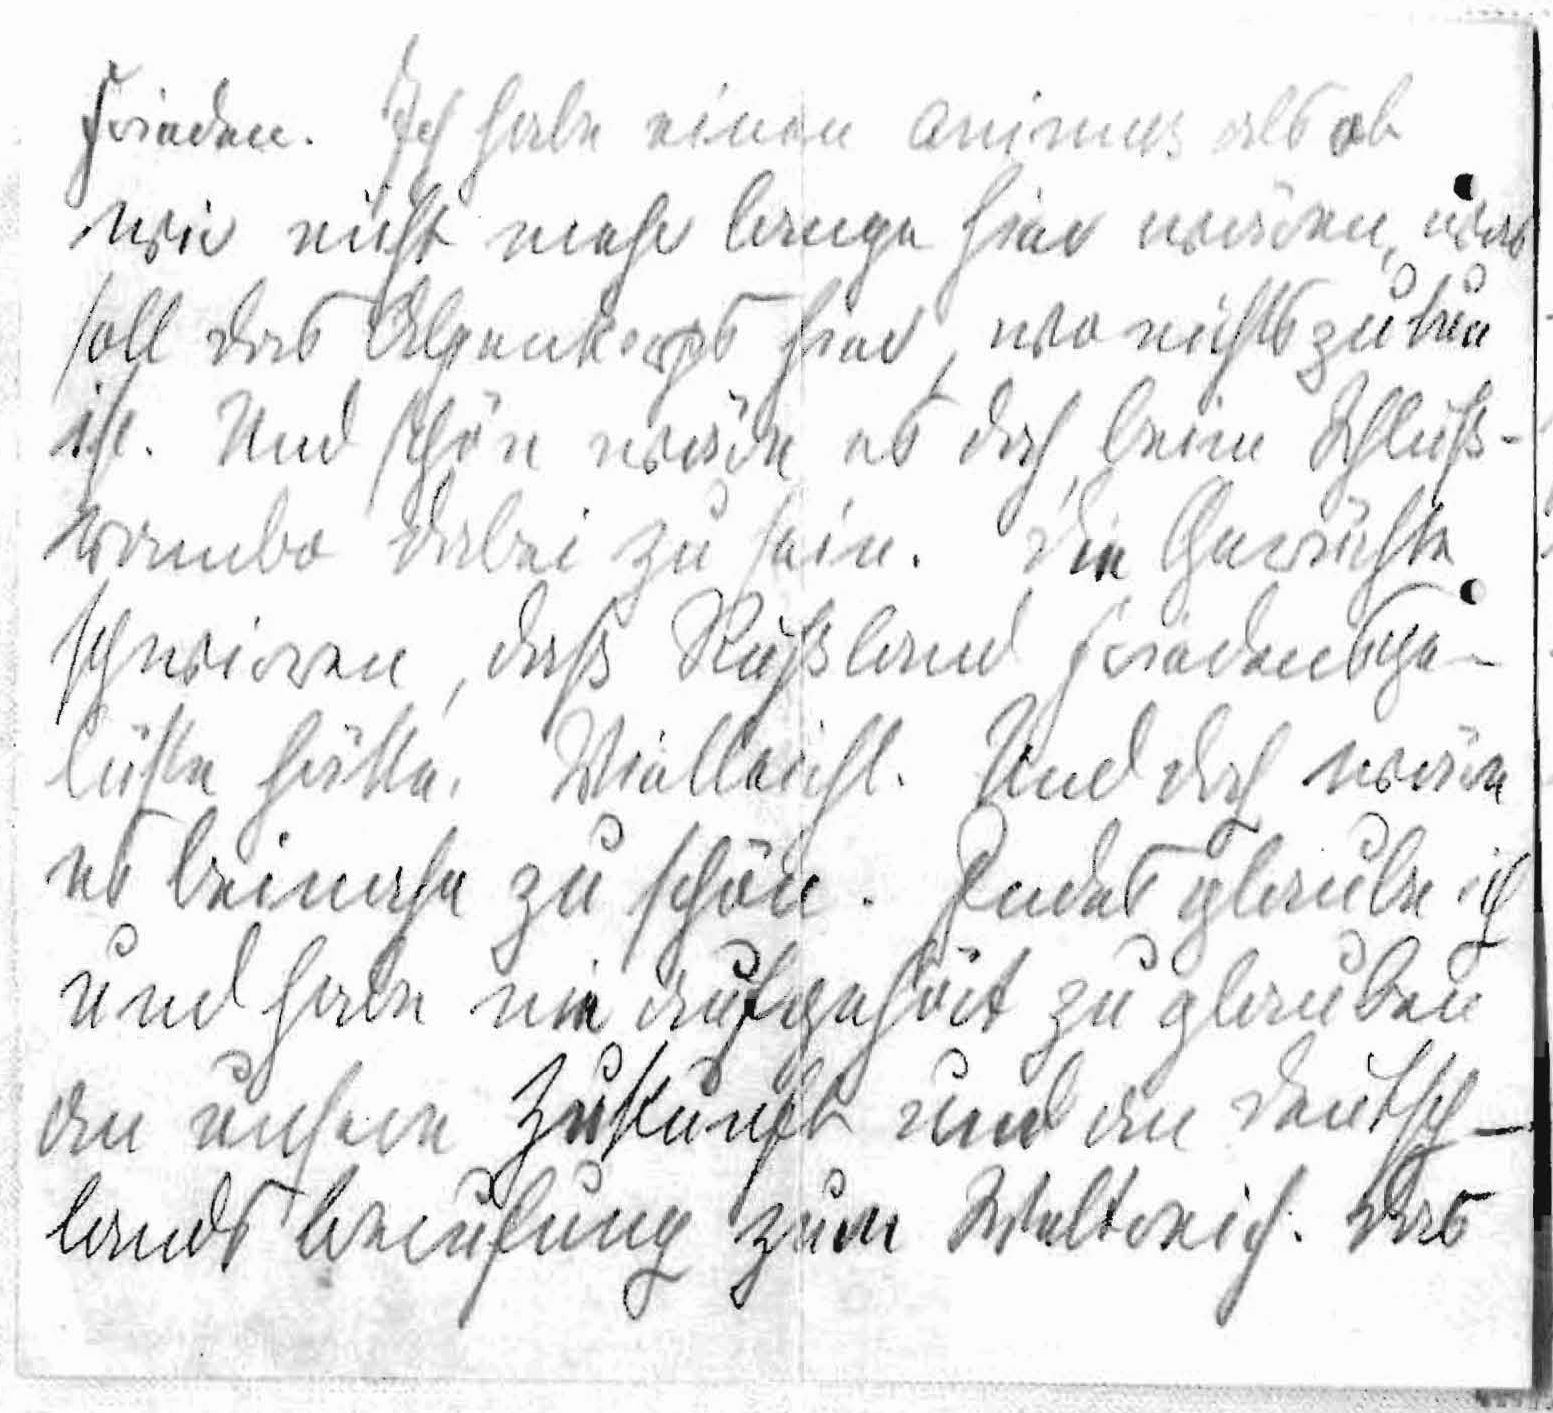 Frieden. Ich habe einen animus als ob
wir nicht mehr lange hier wären, was
soll das Alpenkorps hier, wo nichts zu tun
ist. Und schön wäre es doch, beim Schluß-
rambo dabei zu sein. Die Gerüchte
schwirren, daß Rußland Friedensge-
lüste hätte. Vielleicht. Und doch wäre
es beinahe zu schön. Indes glaube ich
und habe nie aufgehört zu glauben
an unsere Zukunft und an Deutsch-
lands Berufung zum Weltreich. Das